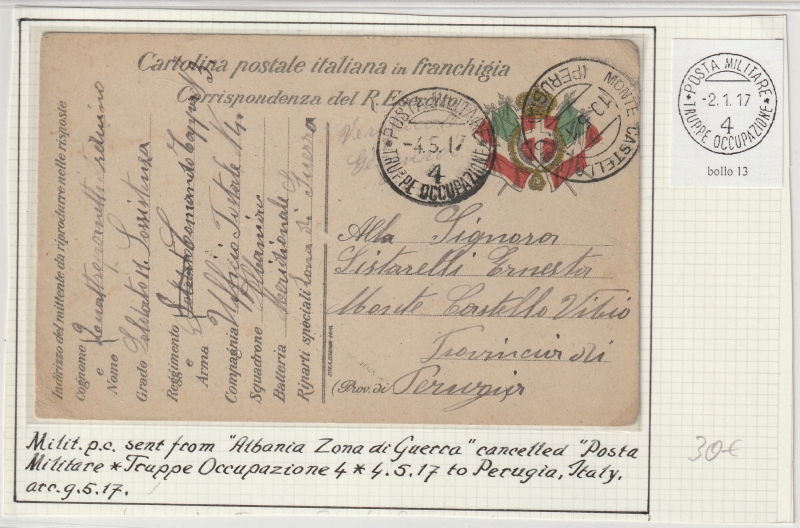 Cartolina postale italiana in franchigia
Corrispondenza del R. Esercito
* POSTA MILITARE *
-4.5.17
4
TRUPPE OCCUPAZIONE
MONTE CASTELLO
(PERUGIA)
Indirizzo del mittente da riprodurre nelle risposte
Cognome
e
Nome
Grado Soldato
Reggimento Comando Tappa
e
Arma
Compagnia Ufficio Postale N. 4
Squadrone Albania
Batteria Meridionale
Riparti speciali Zona di Guerra
Alla Signora
Sistarelli Ernesta
Monte Castello Vibio
Provincia di
(Prov. di Perugia
* POSTA MILITARE *
-2.1.17
4
TRUPPE OCCUPAZIONE
bollo 13
Milit. p.c. sent from "Albania Zona di Guerra" cancelled "Posta
Militare * Truppe Occupazione 4 * 4.5.17 to Perugia, Italy.
arr. 9.5.17.
30€